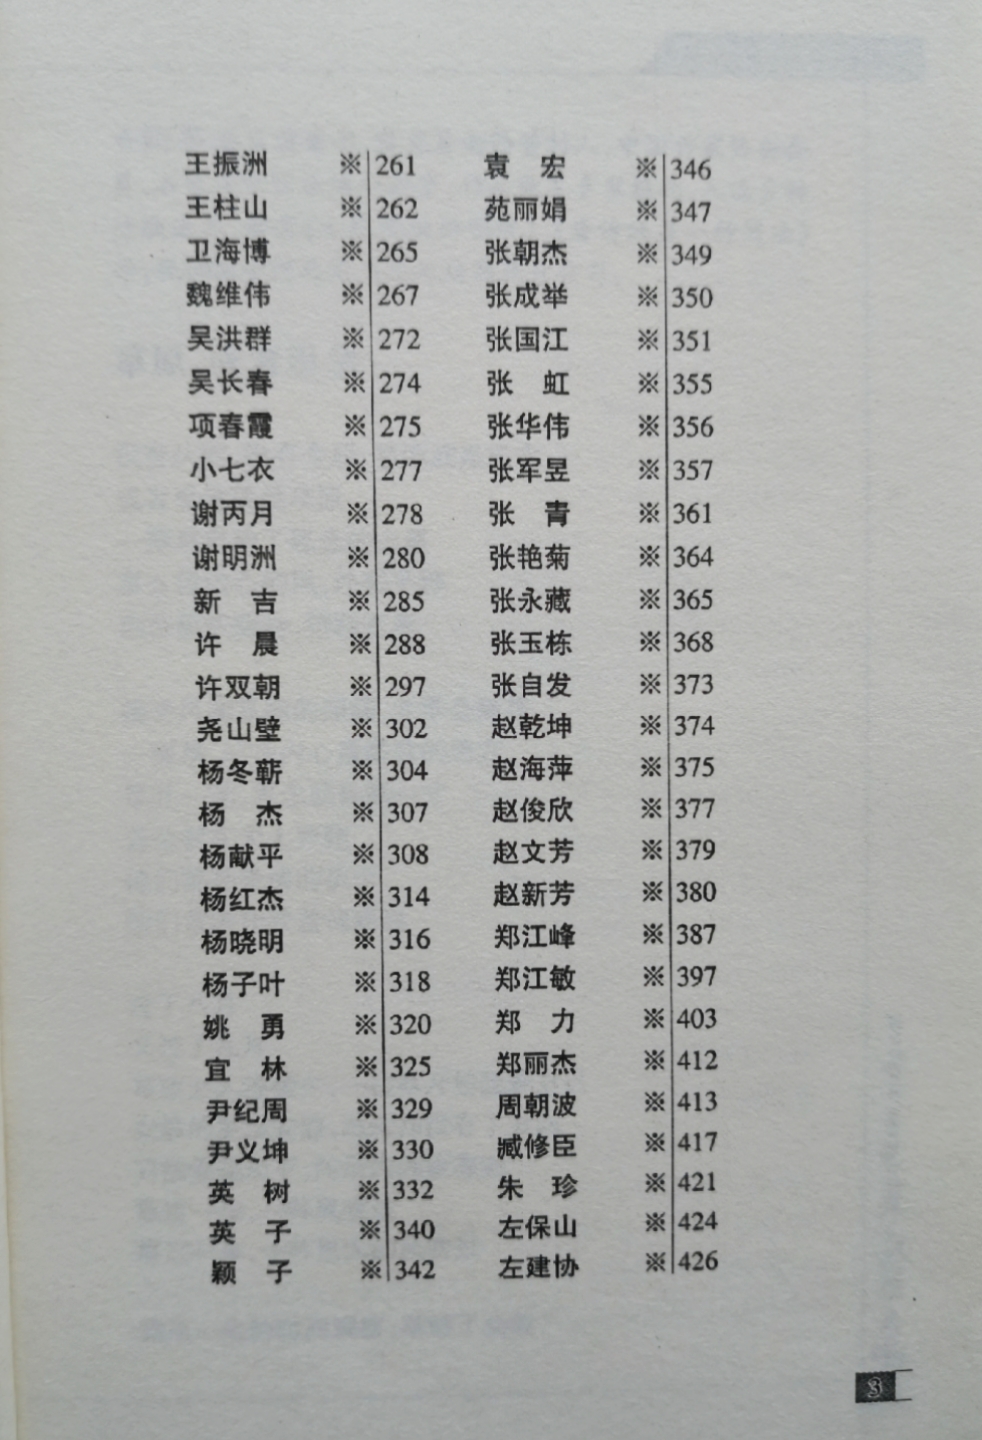 王振洲 ※ 261
王柱山 ※ 262
卫海博 ※ 265
魏维伟 ※ 267
吴洪群 ※ 272
吴长春 ※ 274
项春霞 ※ 275
小七衣 ※ 277
谢丙月 ※ 278
谢明洲 ※ 280
新 吉 ※ 285
许 晨 ※ 288
许双朝 ※ 297
尧山壁 ※ 302
杨冬蕲 ※ 304
杨 杰 ※ 307
杨献平 ※ 308
杨红杰 ※ 314
杨晓明 ※ 316
杨子叶 ※ 318
姚 勇 ※ 320
宜 林 ※ 325
尹纪周 ※ 329
尹义坤 ※ 330
英 树 ※ 332
英 子 ※ 340
颖 子 ※ 342
袁 宏 ※ 346
苑丽娟 ※ 347
张朝杰 ※ 349
张成举 ※ 350
张国江 ※ 351
张 虹 ※ 355
张华伟 ※ 356
张军昱 ※ 357
张 青 ※ 361
张艳菊 ※ 364
张永藏 ※ 365
张玉栋 ※ 368
张自发 ※ 373
赵乾坤 ※ 374
赵海萍 ※ 375
赵俊欣 ※ 377
赵文芳 ※ 379
赵新芳 ※ 380
郑江峰 ※ 387
郑江敏 ※ 397
郑 力 ※ 403
郑丽杰 ※ 412
周朝波 ※ 413
臧修臣 ※ 417
朱 珍 ※ 421
左保山 ※ 424
左建协 ※ 426
3